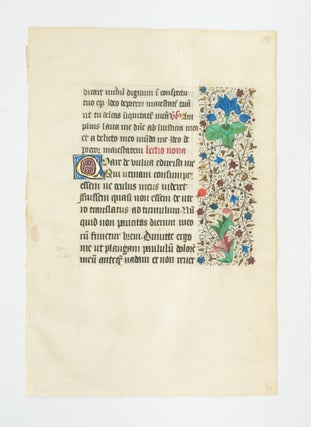 dicare nichil dignum in conspectu
tuo egi ideo deprecor maiestatem tuam
ut tu deleas iniquitatem meam Am
plius laua me domine ab iniusticia mea
et a delicto meo munda me ideo de
precor maiestatem lectio nona
Quare de vulua eduxisti me
Qui utinam consumptus
essem ne oculus me uideret
fuissem quasi non essem de ute
ro translatus ad tumulum Nun
quid non paucitas dierum meo
rum finietur breui Dimitte ergo
me ut plangam paululum dolorem
meum antequam uadam et non reuer